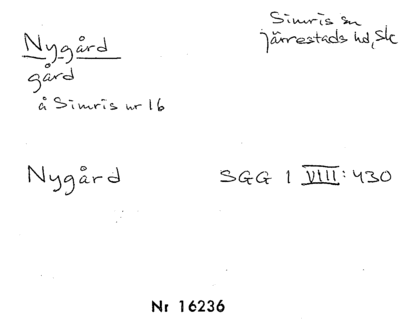 Nygård
gård
å Simris nr 16
Simris sn
Järrestads hd, Sk
Nygård
SGG 1 VIII: 430
Nr 16236